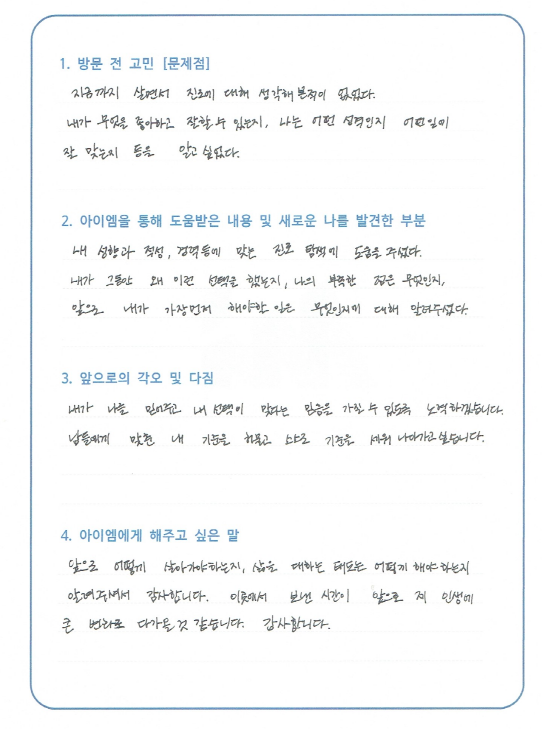 1. 방문 전 고민 [문제점]
지금까지 살면서 진로에 대해 생각해 본적이 없었다.
내가 무엇을 좋아하고 잘할 수 있는지, 나는 어떤 성격인지 어떤일이
잘 맞는지 등을 알고 싶었다.
2. 아이엠을 통해 도움받은 내용 및 새로운 나를 발견한 부분
내 성향과 적성, 경력등에 맞는 진로 탐색에 도움을 주셨다.
내가 그동안 왜 이런 선택을 했는지, 나의 부족한 점은 무엇인지,
앞으로 내가 가장먼저 해야할 일은 무엇인지에 대해 알려주셨다.
3. 앞으로의 각오 및 다짐
내가 나를 믿어주고 내 선택이 맞다는 믿음을 가질 수 있도록 노력하겠습니다.
남들에게 맞춘 내 기준을 허물고 스스로 기준을 세워 나아가고싶습니다.
4. 아이엠에게 해주고 싶은 말
앞으로 어떻게 살아가야하는지, 삶을 대하는 태도는 어떻게 해야 하는지
알려주셔서 감사합니다. 이곳에서 보낸 시간이 앞으로 제 인생에
큰 변화로 다가올것 같습니다. 감사합니다.